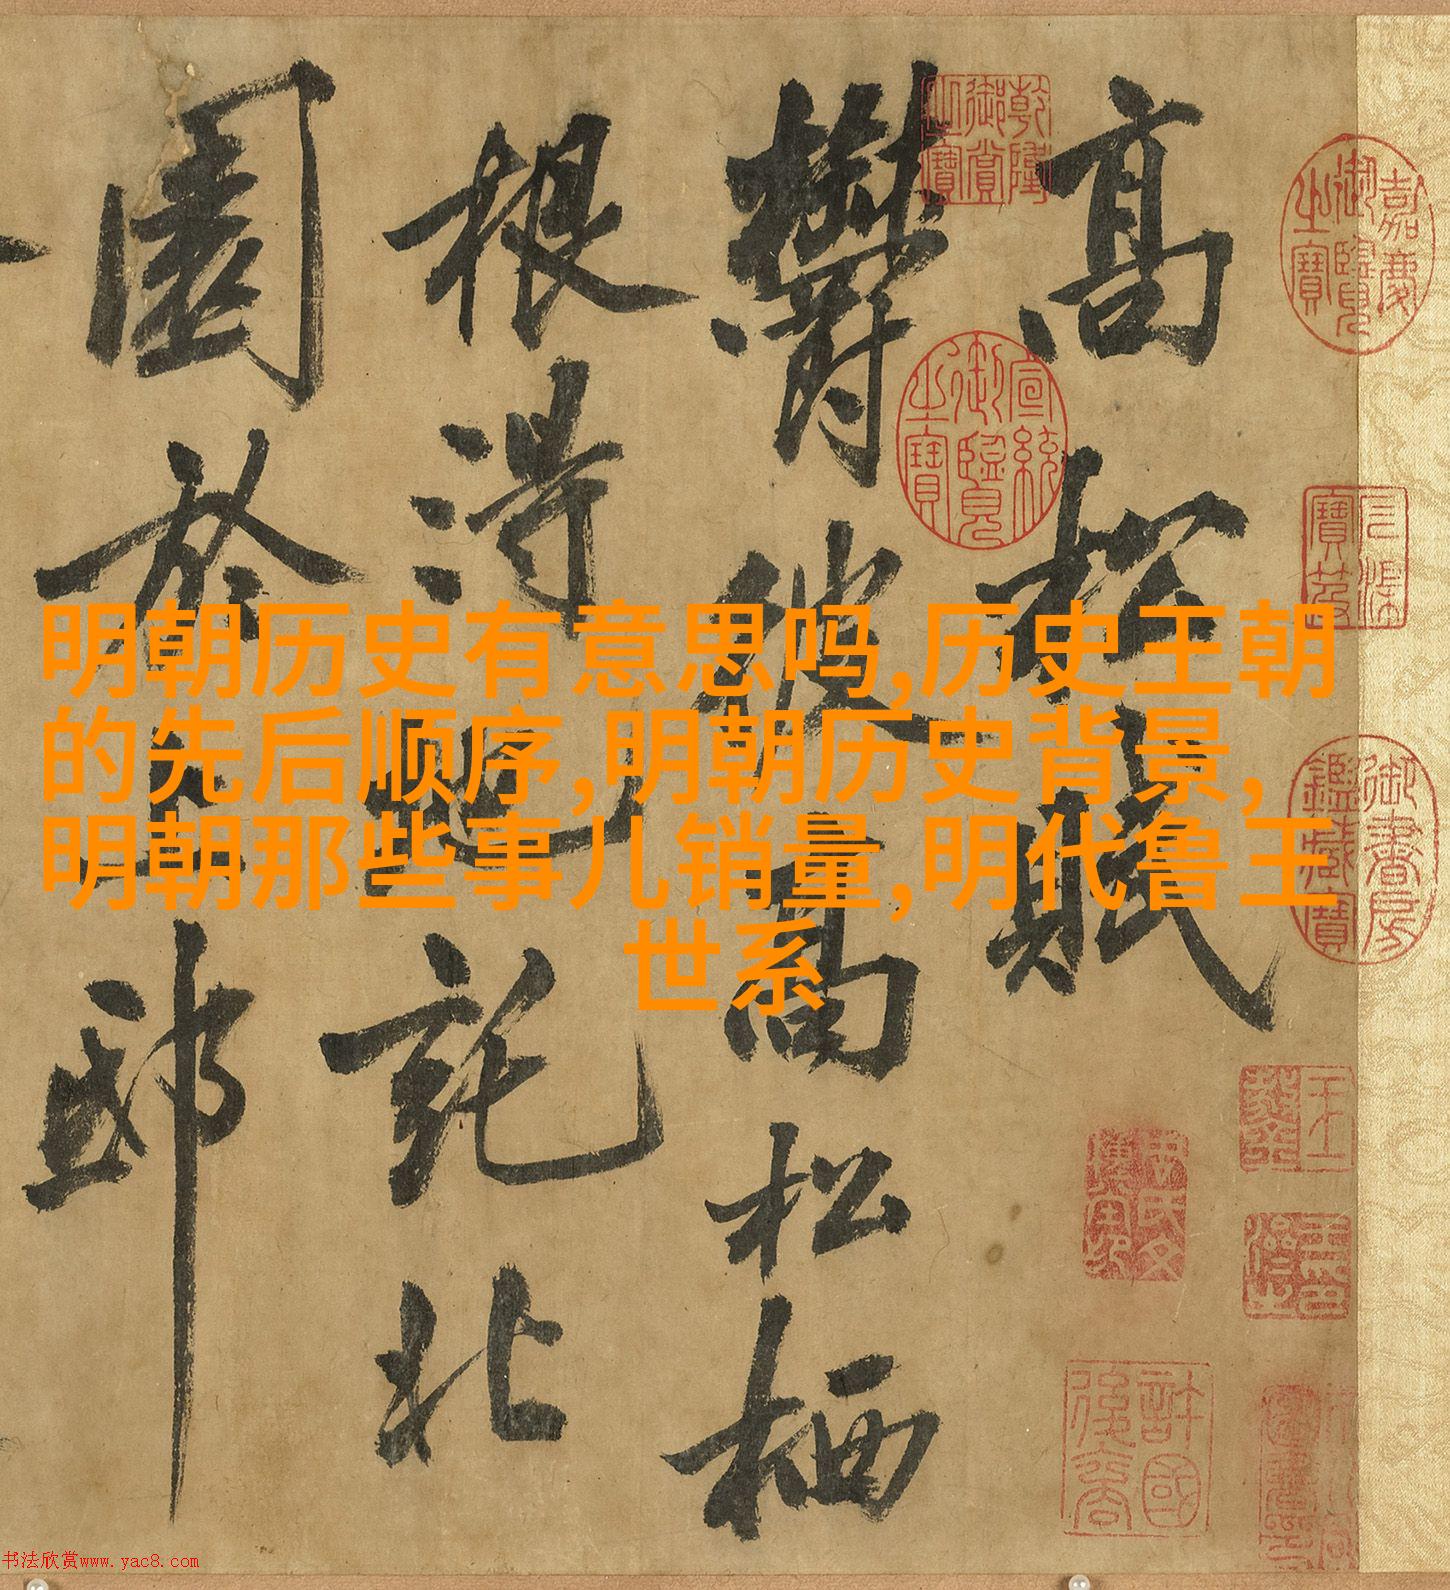 高松賦
鬱彼高松栖
根得地託北
園於上邸
乾隆御賞之寶
宣統御覽之寶
嘉慶御覽之寶
石渠寶笈
御書房鑑藏寶
明朝历史有意思吗,历史王朝
的先后顺序,明朝历史背景,
明朝那些事儿销量,明代鲁王
世系
許國後裔
书法欣赏www.yac8.com